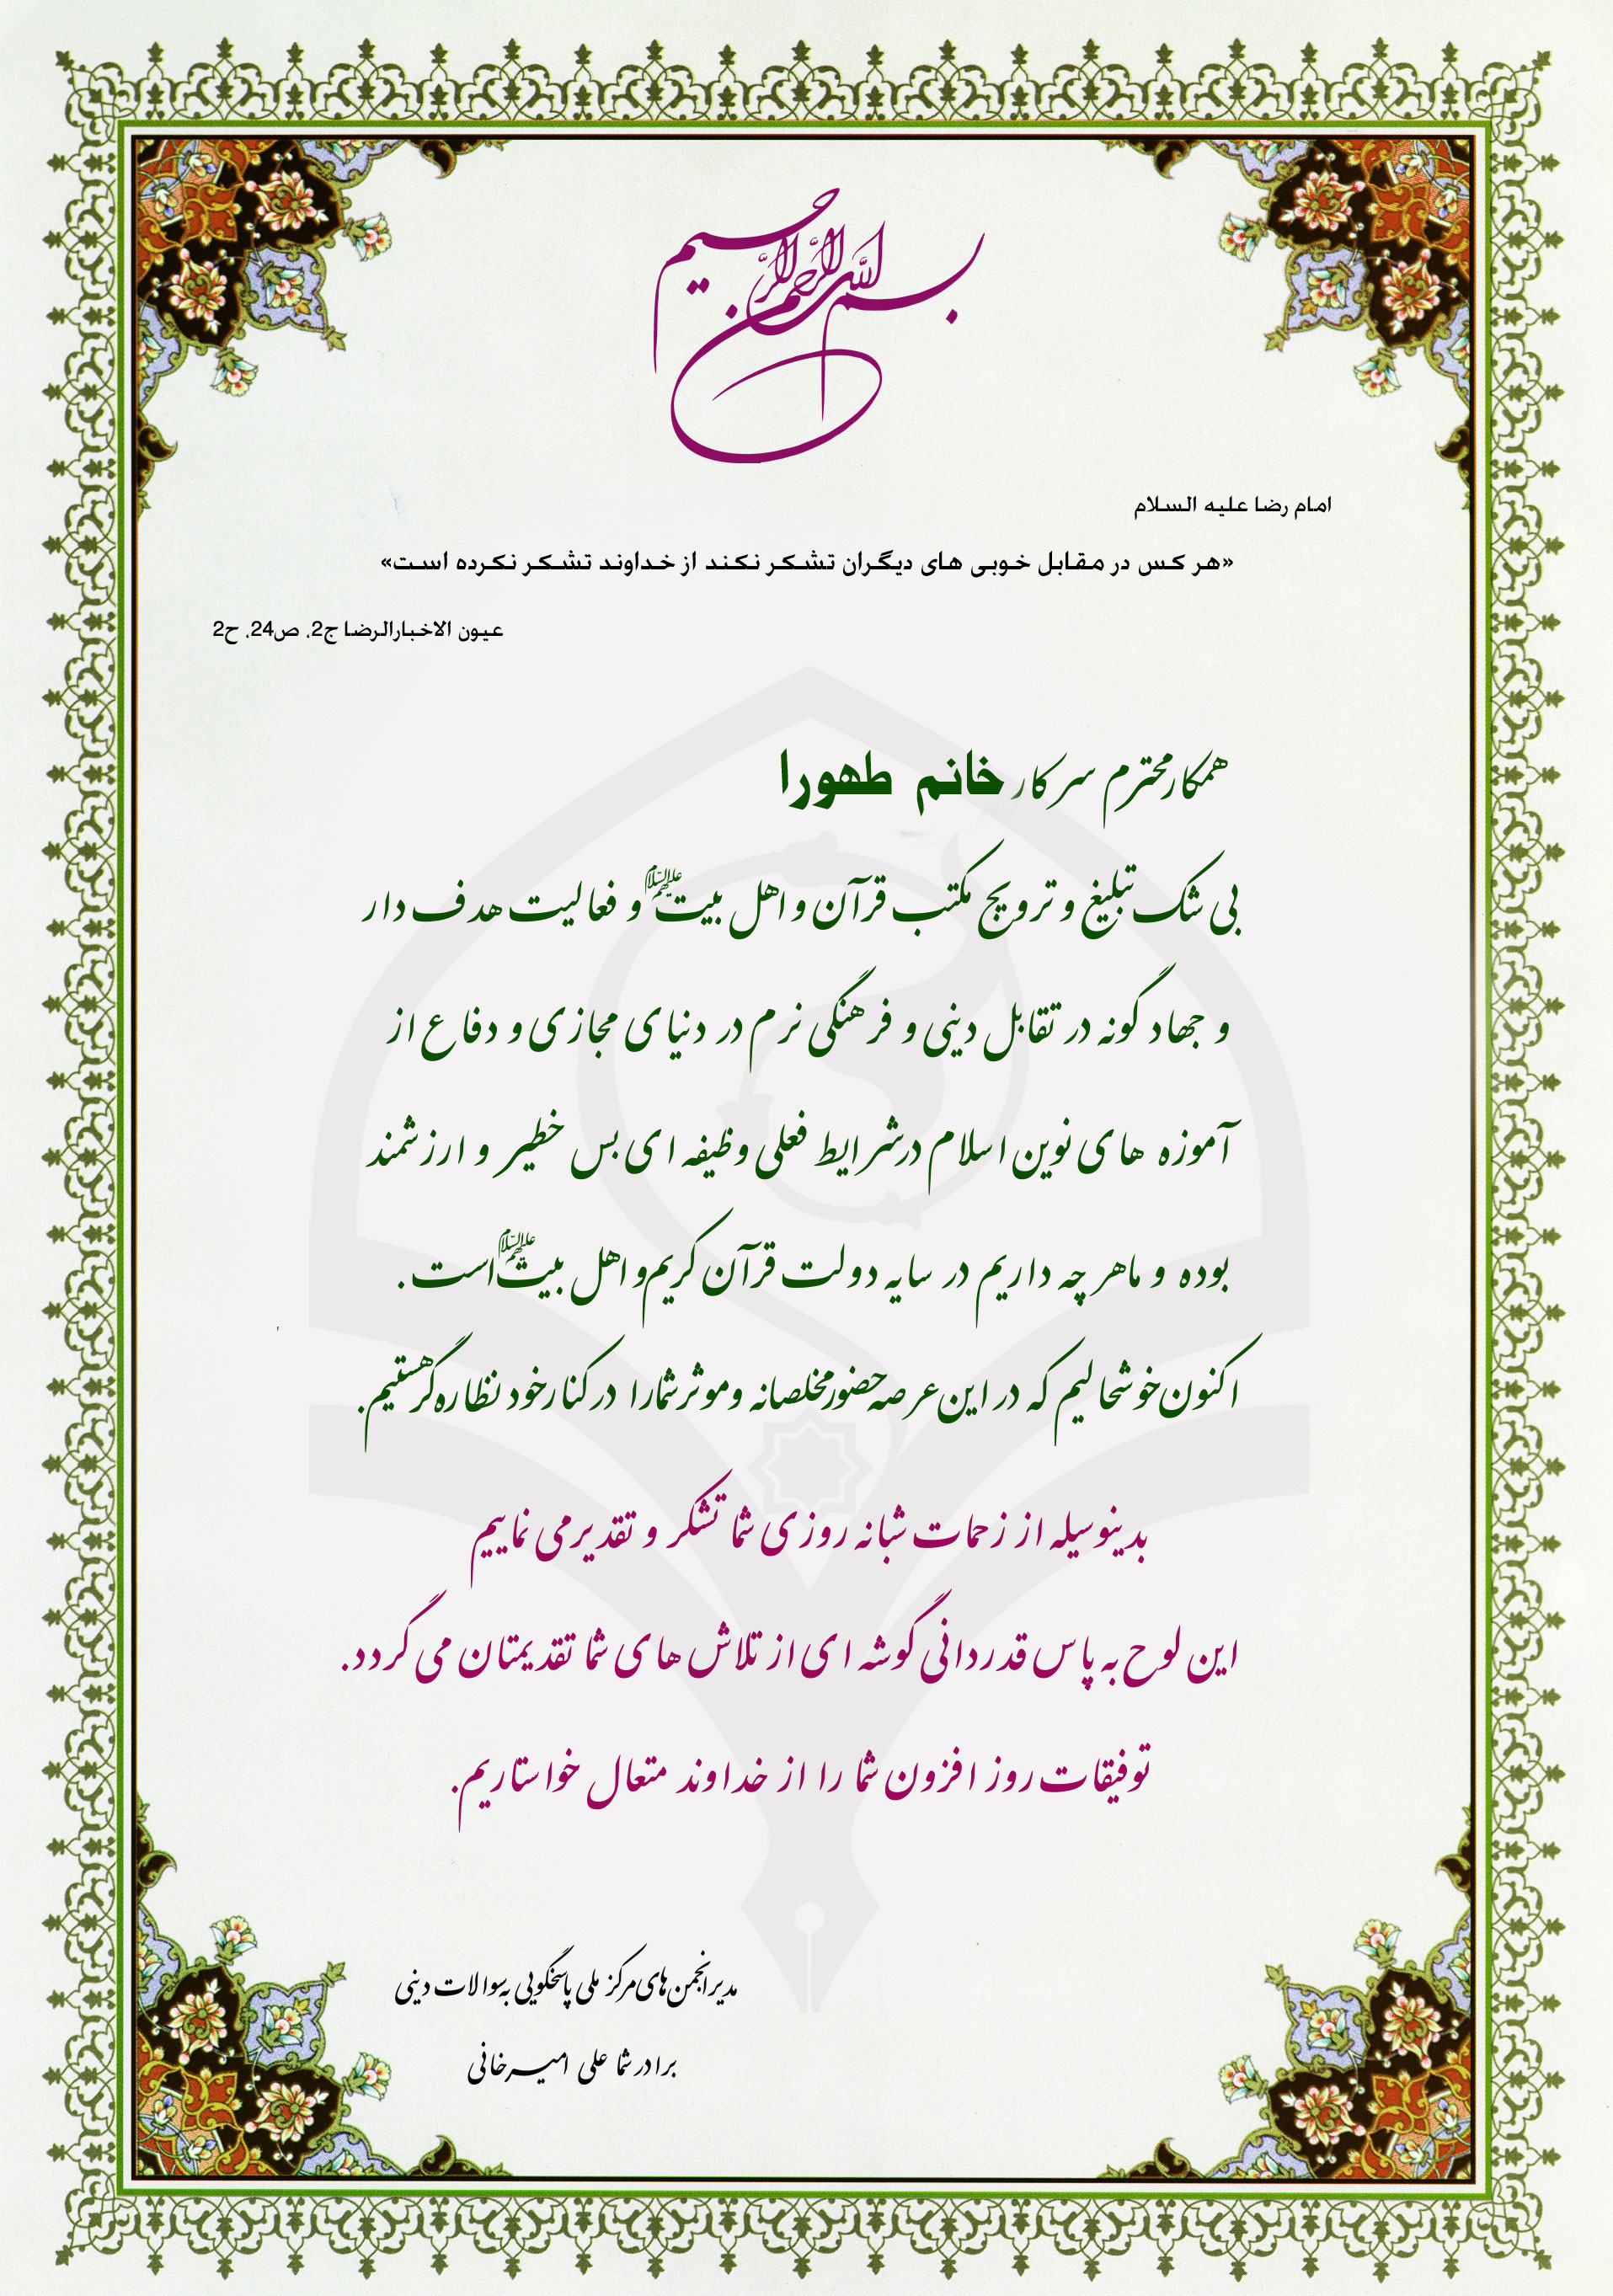 بسم الله الرحمن الرحیم
امام رضا علیه السلام
«هر کس در مقابل خوبی های دیگران تشکر نکند از خداوند تشکر نکرده است»
عیون الاخبارالرضا ج2، ص24، ح2
همکار محترم سرکار خانم طهورا
بی شک تبلیغ و ترویج مکتب قرآن و اهل بیت علیهم السلام و فعالیت هدف دار
و جهاد گونه در تقابل دینی و فرهنگی نرم در دنیای مجازی و دفاع از
آموزه های نوین اسلام درشرایط فعلی وظیفه ای بس خطیر و ارزشمند
بوده و ماهر چه داریم در سایه دولت قرآن کریم و اهل بیت علیهم السلام است.
اکنون خوشحالیم که در این عرصه حضور مخلصانه و موثر شمارا در کنار خود نظاره گر هستیم.
بدینوسیله از زحمات شبانه روزی شما تشکر و تقدیر می نماییم
این لوح به پاس قدردانی گوشه ای از تلاش های شما تقدیمتان می گردد.
توفیقات روز افزون شما را از خداوند متعال خواستاریم.
مدیر انجمن های مرکز ملی پاسخگویی به سوالات دینی
برادر شما علی امیرخانی